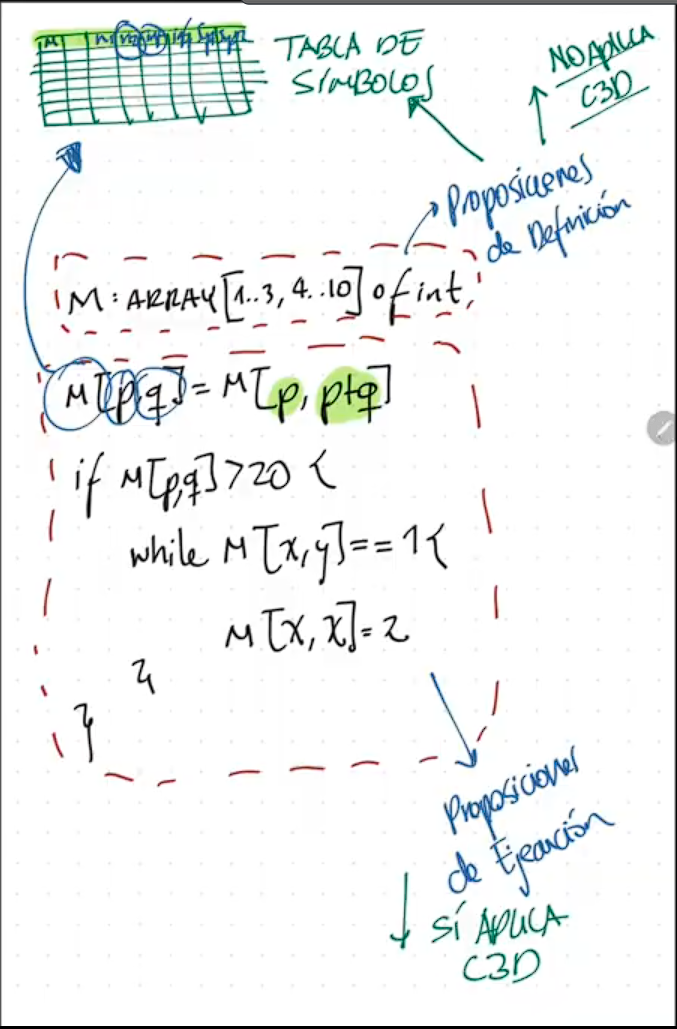 M
TABLA DE
SÍMBOLOS
NO APLICA
C3D
Proposiciones
de Definición
M : ARRAY[1..3, 4..10] of int,
M[p,q] = M[p, p+q]
if M[p,q] > 20 {
while M[x,y] == 1 {
M[x,x] = 2
}
}
Proposiciones
de Ejecución
SÍ APLICA
C3D